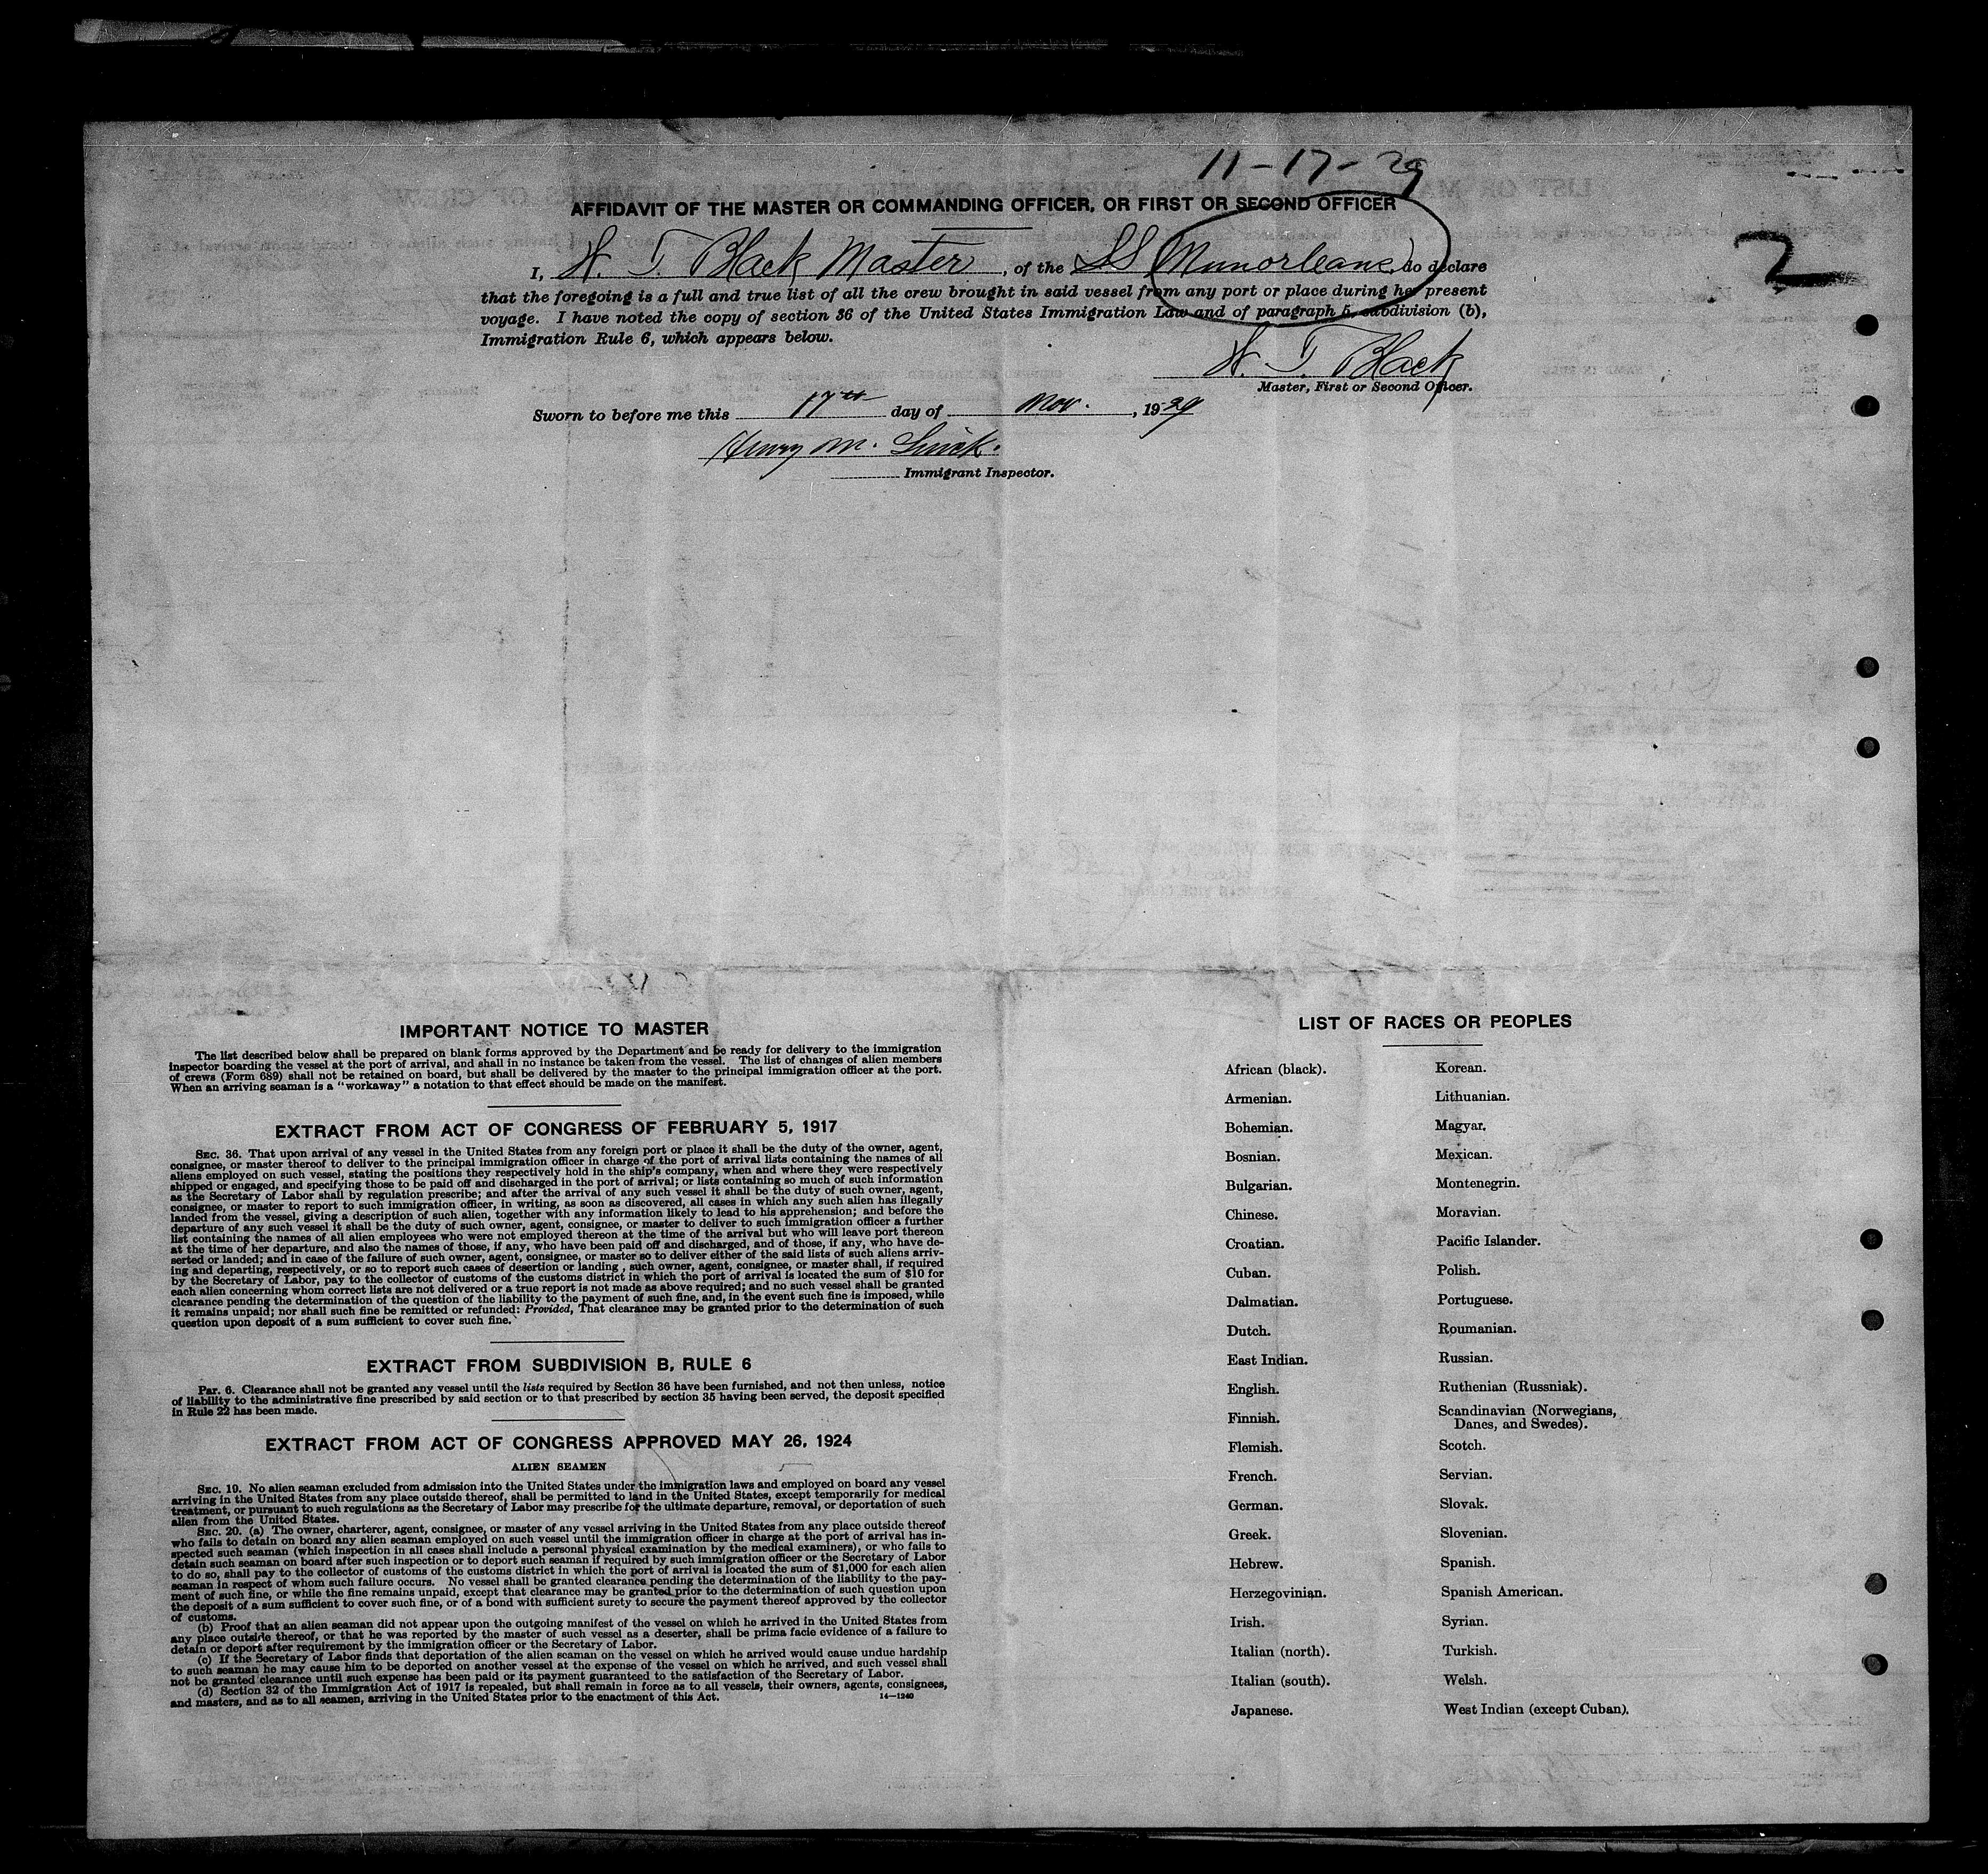 11-17-29
AFFIDAVIT OF THE MASTER OR COMMANDING OFFICER, OR FIRST OR SECOND OFFICER
2
I, H. T. Black Master, of the SS Munorleans, do declare
that the foregoing is a full and true list of all the crew brought in said vessel from any port or place during her present
voyage. I have noted the copy of section 36 of the United States Immigration Law and of paragraph 5, subdivision (b),
Immigration Rule 6, which appears below.
H. T. Black
Master, First or Second Officer.
Sworn to before me this 17th day of Nov., 1929
Henry M.
Immigrant Inspector.
IMPORTANT NOTICE TO MASTER
The list described below shall be prepared on blank forms approved by the Department and be ready for delivery to the immigration
inspector boarding the vessel at the port of arrival, and shall in no instance be taken from the vessel. The list of changes of alien members
of crews (Form 689) shall not be retained on board, but shall be delivered by the master to the principal immigration officer at the port.
When an arriving seaman is a "workaway" a notation to that effect should be made on the manifest.
EXTRACT FROM ACT OF CONGRESS OF FEBRUARY 5, 1917
SEC. 36. That upon arrival of any vessel in the United States from any foreign port or place it shall be the duty of the owner, agent,
consignee, or master thereof to deliver to the principal immigration officer in charge of the port of arrival lists containing the names of all
aliens employed on such vessel, stating the positions they respectively hold in the ship's company, when and where they were respectively
shipped or engaged, and specifying those to be paid off and discharged in the port of arrival; or lists containing so much of such information
as the Secretary of Labor shall by regulation prescribe; and after the arrival of any such vessel it shall be the duty of such owner, agent,
consignee, or master to report to such immigration officer, in writing, as soon as discovered, all cases in which any such alien has illegally
landed from the vessel, giving a description of such alien, together with any information likely to lead to his apprehension; and before the
departure of any such vessel it shall be the duty of such owner, agent, consignee, or master to deliver to such immigration officer a further
list containing the names of all alien employees who were not employed thereon at the time of the arrival but who will leave port thereon
at the time of her departure, and also the names of those, if any, who have been paid off and discharged, and of those, if any, who have de-
serted or landed; and in case of the failure of such owner, agent, consignee, or master so to deliver either of the said lists of such aliens arriv-
ing and departing, respectively, or so to report such cases of desertion or landing , such owner, agent, consignee, or master shall, if required
by the Secretary of Labor, pay to the collector of customs of the customs district in which the port of arrival is located the sum of $10 for
each alien concerning whom correct lists are not delivered or a true report is not made as above required; and no such vessel shall be granted
clearance pending the determination of the question of the liability to the payment of such fine, and, in the event such fine is imposed, while
it remains unpaid; nor shall such fine be remitted or refunded: Provided, That clearance may be granted prior to the determination of such
question upon deposit of a sum sufficient to cover such fine.
EXTRACT FROM SUBDIVISION B, RULE 6
Par. 6. Clearance shall not be granted any vessel until the lists required by Section 36 have been furnished, and not then unless, notice
of liability to the administrative fine prescribed by said section or to that prescribed by section 35 having been served, the deposit specified
in Rule 22 has been made.
EXTRACT FROM ACT OF CONGRESS APPROVED MAY 26, 1924
ALIEN SEAMEN
SEC. 19. No alien seaman excluded from admission into the United States under the immigration laws and employed on board any vessel
arriving in the United States from any place outside thereof, shall be permitted to land in the United States, except temporarily for medical
treatment, or pursuant to such regulations as the Secretary of Labor may prescribe for the ultimate departure, removal, or deportation of such
alien from the United States.
SEC. 20. (a) The owner, charterer, agent, consignee, or master of any vessel arriving in the United States from any place outside thereof
who fails to detain on board any alien seaman employed on such vessel until the immigration officer in charge at the port of arrival has in-
spected such seaman (which inspection in all cases shall include a personal physical examination by the medical examiners), or who fails to
detain such seaman on board after such inspection or to deport such seaman if required by such immigration officer or the Secretary of Labor
to do so, shall pay to the collector of customs of the customs district in which the port of arrival is located the sum of $1,000 for each alien
seaman in respect of whom such failure occurs. No vessel shall be granted clearance pending the determination of the liability to the pay-
ment of such fine, or while the fine remains unpaid, except that clearance may be granted prior to the determination of such question upon
the deposit of a sum sufficient to cover such fine, or of a bond with sufficient surety to secure the payment thereof approved by the collector
of customs.
(b) Proof that an alien seaman did not appear upon the outgoing manifest of the vessel on which he arrived in the United States from
any place outside thereof, or that he was reported by the master of such vessel as a deserter, shall be prima facie evidence of a failure to
detain or deport after requirement by the immigration officer or the Secretary of Labor.
(c) If the Secretary of Labor finds that deportation of the alien seaman on the vessel on which he arrived would cause undue hardship
to such seaman he may cause him to be deported on another vessel at the expense of the vessel on which he arrived, and such vessel shall
not be granted clearance until such expense has been paid or its payment guaranteed to the satisfaction of the Secretary of Labor.
(d) Section 32 of the Immigration Act of 1917 is repealed, but shall remain in force as to all vessels, their owners, agents, consignees,
and masters, and as to all seamen, arriving in the United States prior to the enactment of this Act.
14—1240
LIST OF RACES OR PEOPLES
African (black).
Armenian.
Bohemian.
Bosnian.
Bulgarian.
Chinese.
Croatian.
Cuban.
Dalmatian.
Dutch.
East Indian.
English.
Finnish.
Flemish.
French.
German.
Greek.
Hebrew.
Herzegovinian.
Irish.
Italian (north).
Italian (south).
Japanese.
Korean.
Lithuanian.
Magyar.
Mexican.
Montenegrin.
Moravian.
Pacific Islander.
Polish.
Portuguese.
Roumanian.
Russian.
Ruthenian (Russniak).
Scandinavian (Norwegians,
Danes, and Swedes).
Scotch.
Servian.
Slovak.
Slovenian.
Spanish.
Spanish American.
Syrian.
Turkish.
Welsh.
West Indian (except Cuban).